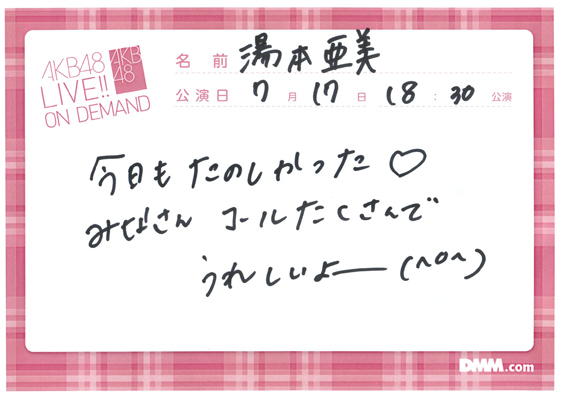 AKB48
LIVE!!
ON DEMAND
AKB
48
名前 湯本亜美
公演日 7月17日 18:30 公演
今日もたのしかった♡
みなさん コールたくさんで
うれしいよー (^o^)
DMM.com